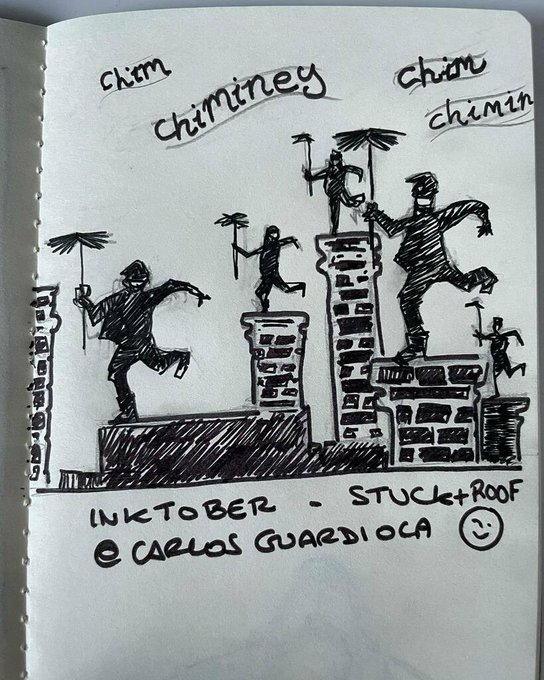 chim
chiminey
chim
chimin
INKTOBER - STUCK+ROOF
@ CARLOS GUARDIOLA